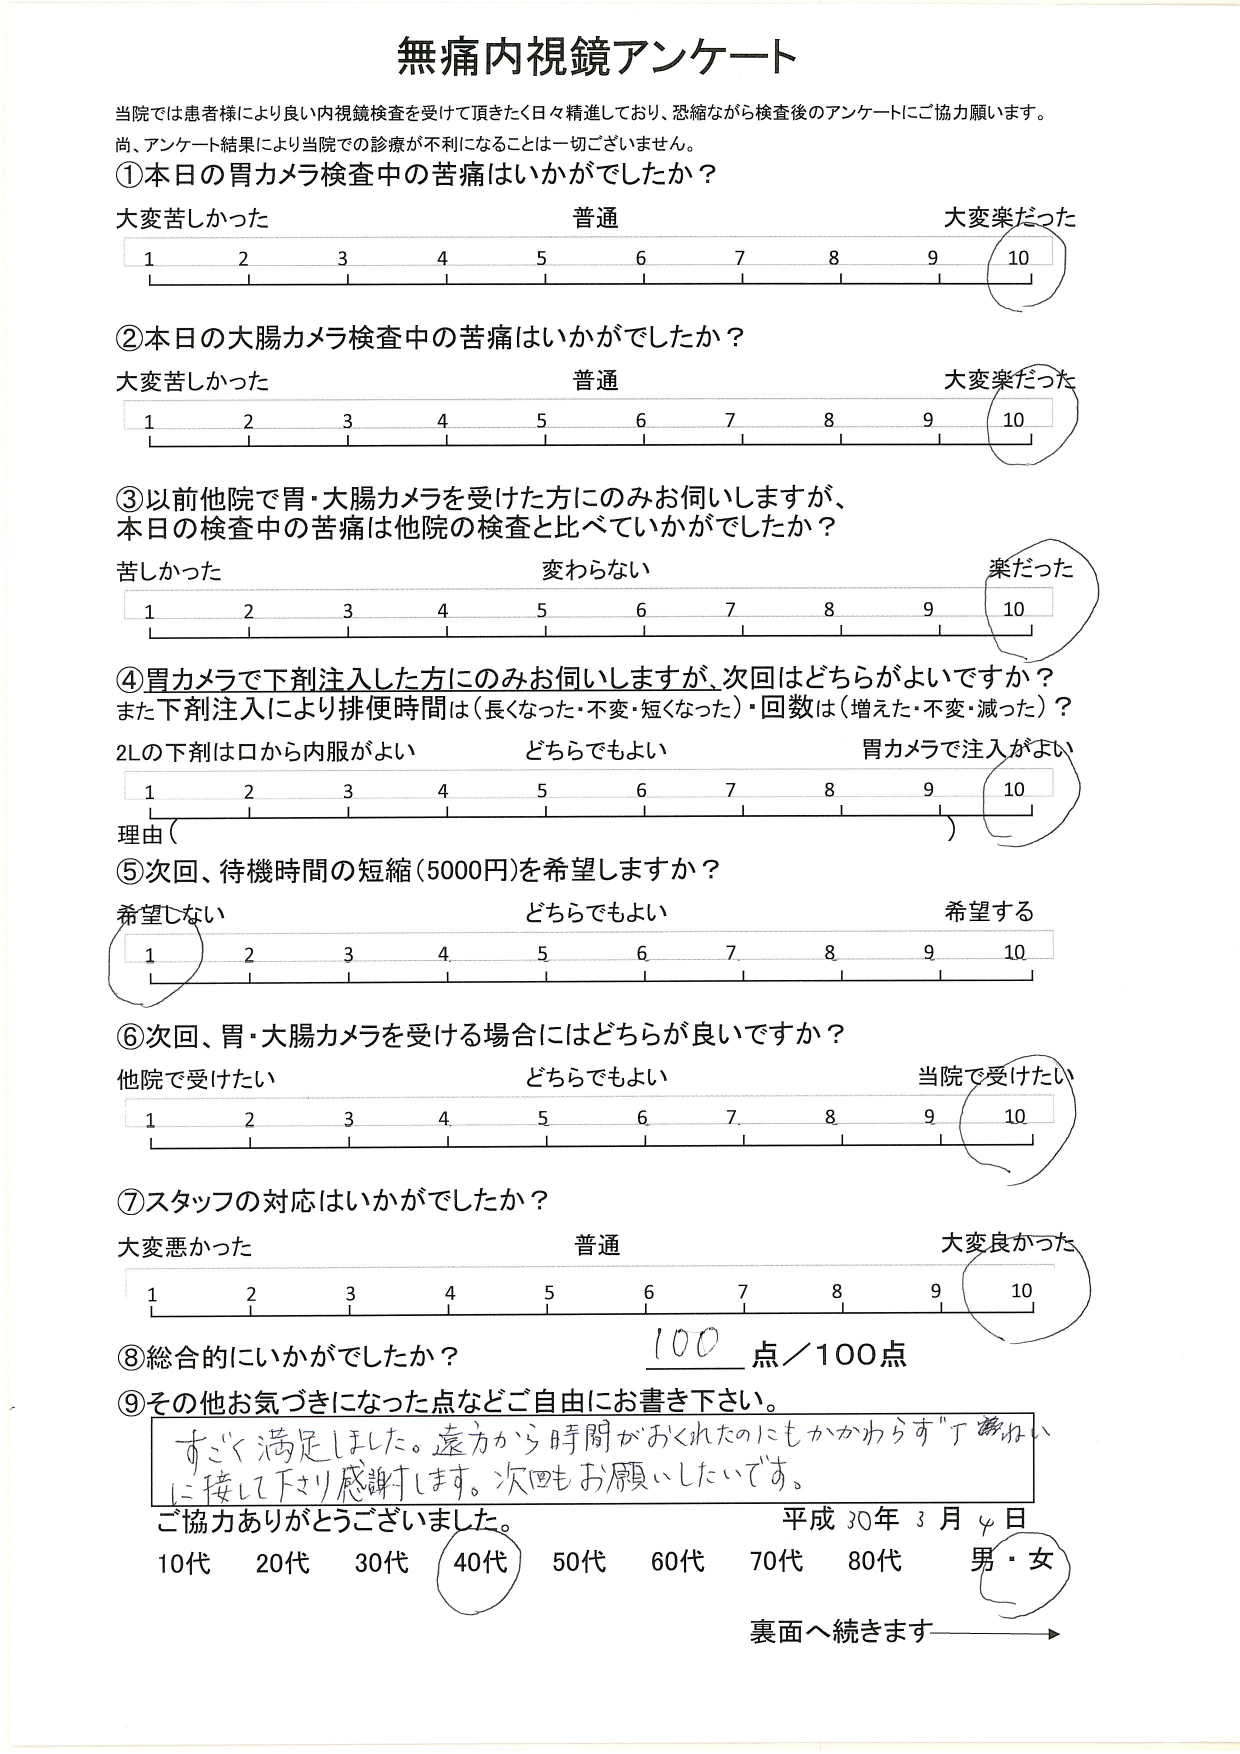 無痛内視鏡アンケート
当院では患者様により良い内視鏡検査を受けて頂きたく日々精進しており、恐縮ながら検査後のアンケートにご協力願います。
尚、アンケート結果により当院での診療が不利になることは一切ございません。
①本日の胃カメラ検査中の苦痛はいかがでしたか？
大変苦しかった 普通 大変楽だった
1 2 3 4 5 6 7 8 9 10
②本日の大腸カメラ検査中の苦痛はいかがでしたか？
大変苦しかった 普通 大変楽だった
1 2 3 4 5 6 7 8 9 10
③以前他院で胃・大腸カメラを受けた方にのみお伺いしますが、
本日の検査中の苦痛は他院の検査と比べていかがでしたか？
苦しかった 変わらない 楽だった
1 2 3 4 5 6 7 8 9 10
④胃カメラで下剤注入した方にのみお伺いしますが、次回はどちらがよいですか？
また下剤注入により排便時間は（長くなった・不変・短くなった）・回数は（増えた・不変・減った）？
2Lの下剤は口から内服がよい どちらでもよい 胃カメラで注入がよい
1 2 3 4 5 6 7 8 9 10
理由（ ）
⑤次回、待機時間の短縮（5000円）を希望しますか？
希望しない どちらでもよい 希望する
1 2 3 4 5 6 7 8 9 10
⑥次回、胃・大腸カメラを受ける場合にはどちらが良いですか？
他院で受けたい どちらでもよい 当院で受けたい
1 2 3 4 5 6 7 8 9 10
⑦スタッフの対応はいかがでしたか？
大変悪かった 普通 大変良かった
1 2 3 4 5 6 7 8 9 10
⑧総合的にいかがでしたか？ 100 点／100点
⑨その他お気づきになった点などご自由にお書き下さい。
すごく満足しました。遠方から時間がおくれたのにもかかわらず丁ねい
に接して下さり感謝します。次回もお願いしたいです。
ご協力ありがとうございました。 平成 30年 3 月 4 日
10代 20代 30代 40代 50代 60代 70代 80代 男・女
裏面へ続きます